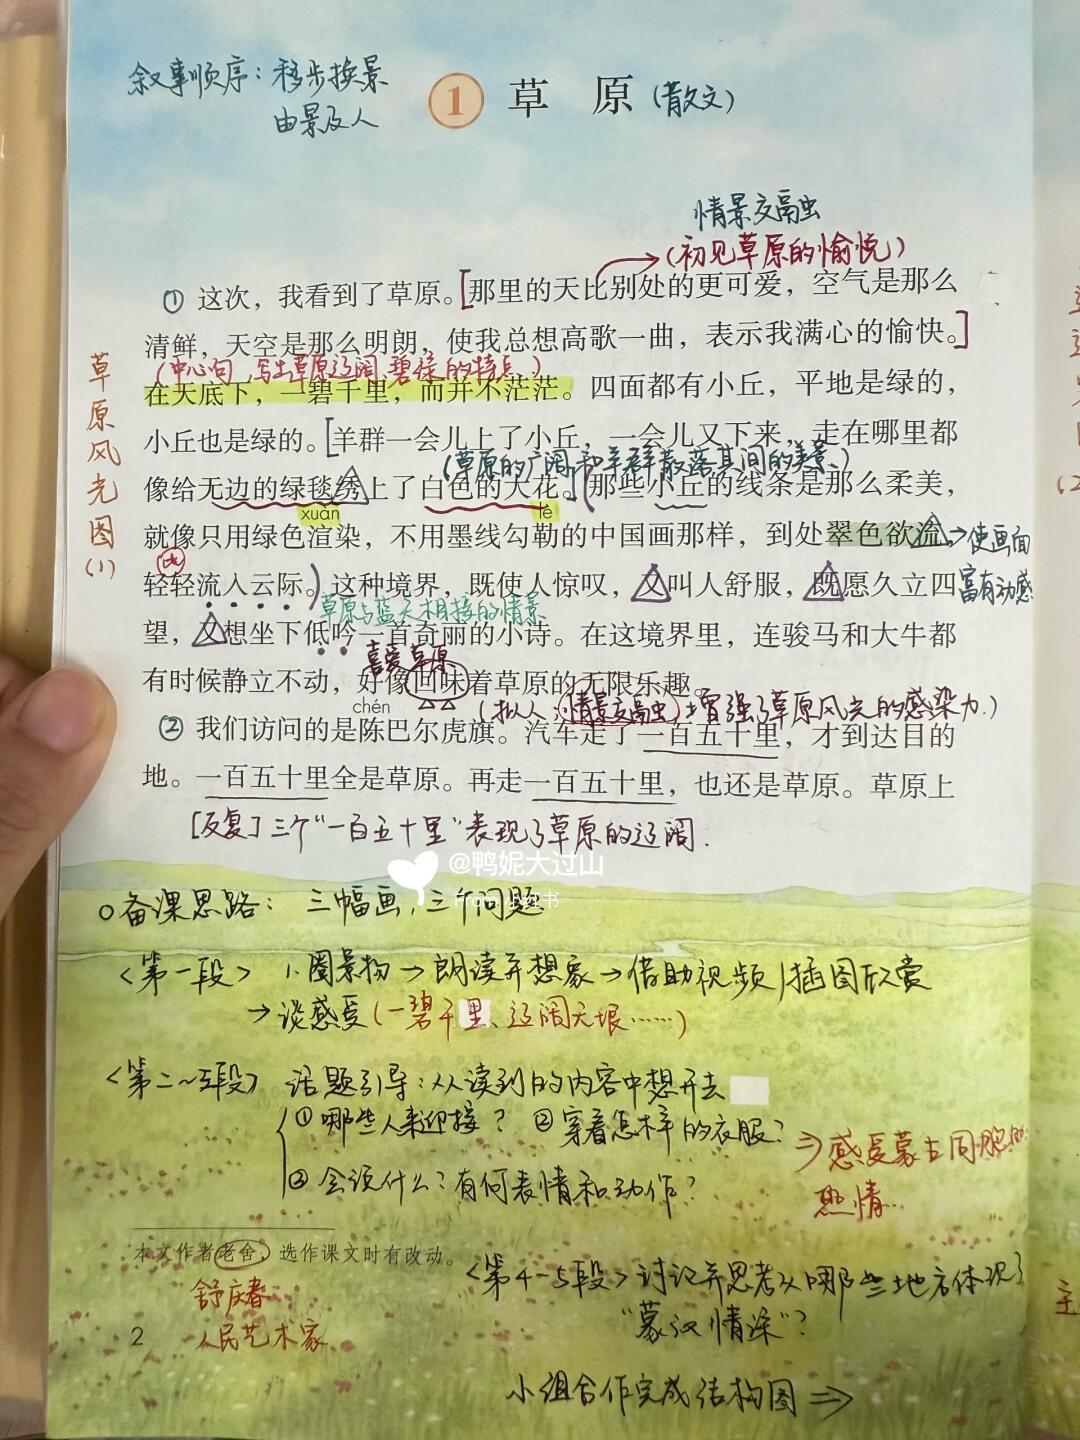 叙事顺序：移步换景
由景及人
1 草 原 (散文)
情景交融
(初见草原的愉悦)
① 这次，我看到了草原。[那里的天比别处的更可爱，空气是那么
清鲜，天空是那么明朗，使我总想高歌一曲，表示我满心的愉快。]
(中心句，写出草原辽阔、碧绿的特点。)
在天底下，一碧千里，而并不茫茫。四面都有小丘，平地是绿的，
小丘也是绿的。[羊群一会儿上了小丘，一会儿又下来，走在哪里都
(草原的广阔和羊群散落其间的美景。)
像给无边的绿毯绣上了白色的大花。](那些小丘的线条是那么柔美，
xuàn lè
就像只用绿色渲染，不用墨线勾勒的中国画那样，到处翠色欲流，
→使画面
富有动感
比
轻轻流入云际。)这种境界，既使人惊叹，又叫人舒服，既愿久立四
草原与蓝天相接的情景
望，又想坐下低吟一首奇丽的小诗。在这境界里，连骏马和大牛都
喜爱草原
有时候静立不动，好像回味着草原的无限乐趣。
chén
(拟人，情景交融，增强了草原风光的感染力.)
② 我们访问的是陈巴尔虎旗。汽车走了一百五十里，才到达目的
地。一百五十里全是草原。再走一百五十里，也还是草原。草原上
[反复]三个“一百五十里”表现了草原的辽阔.
草原风光图(1)
@鸭妮大过山
From 小红书
备课思路：三幅画，三个问题
<第一段> 1.圈景物→朗读并想象→借助视频/插图欣赏
→谈感受(一碧千里、辽阔无垠……)
<第二~三段> 话题引导：从读到的内容中想开去
①哪些人来迎接？ ②穿着怎样的衣服？
③会说什么？有何表情和动作？
⇒感受蒙古同胞的
热情…
本文作者老舍，选作课文时有改动。
舒庆春
人民艺术家
<第4-5段>讨论并思考从哪些地方体现了
“蒙汉情深”？
2
小组合作完成结构图⇒